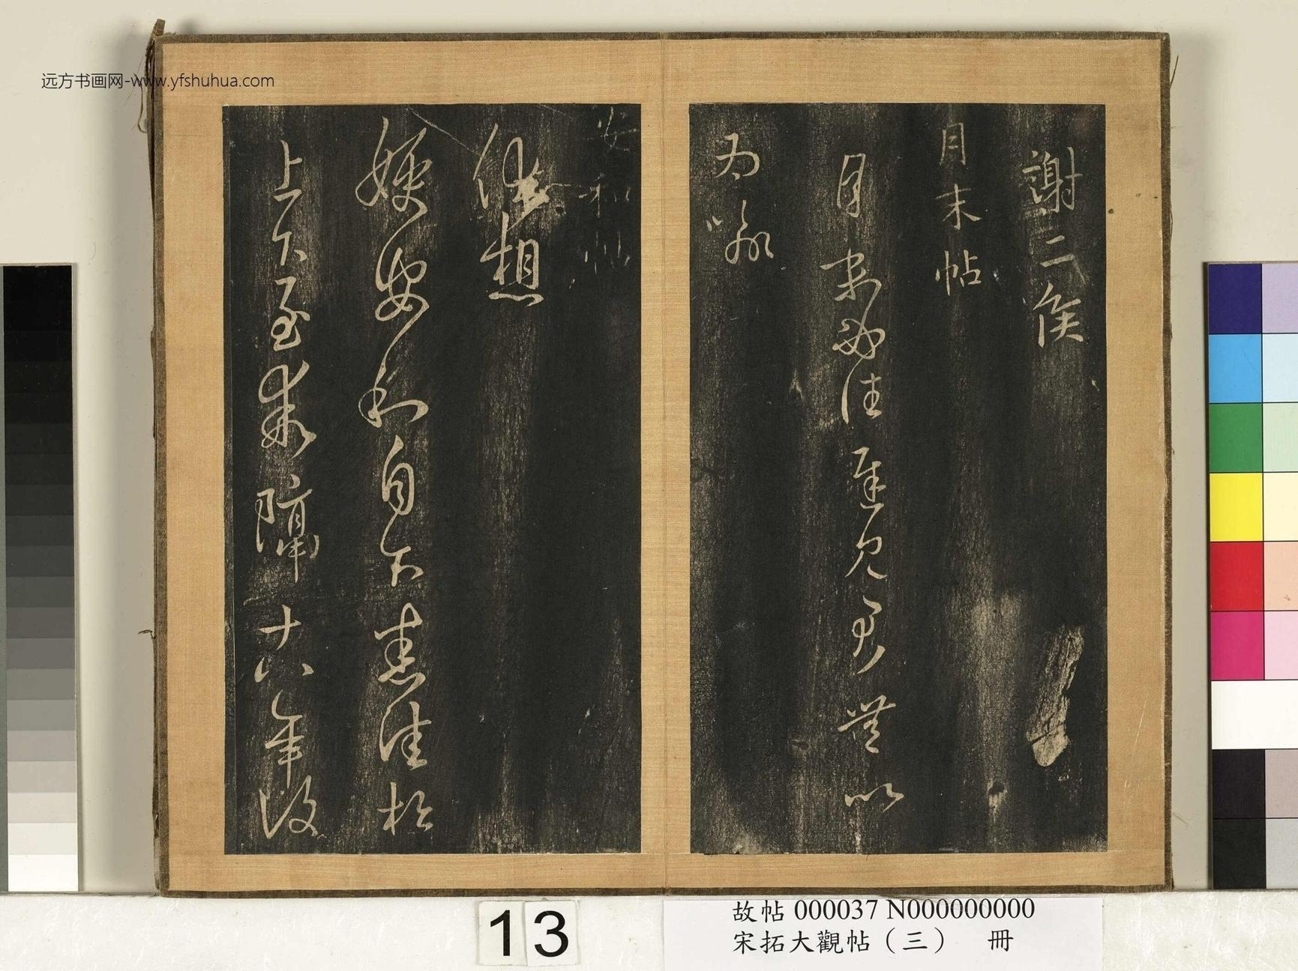 远方书画网-www.yfshuhua.com
謝二侯
月末帖
月末必往遲見君無以
為喻
安和帖
想
嫂安和自下悉佳松
上下至乖隔十八年復
13
故帖 000037 N000000000
宋拓大觀帖（三） 冊